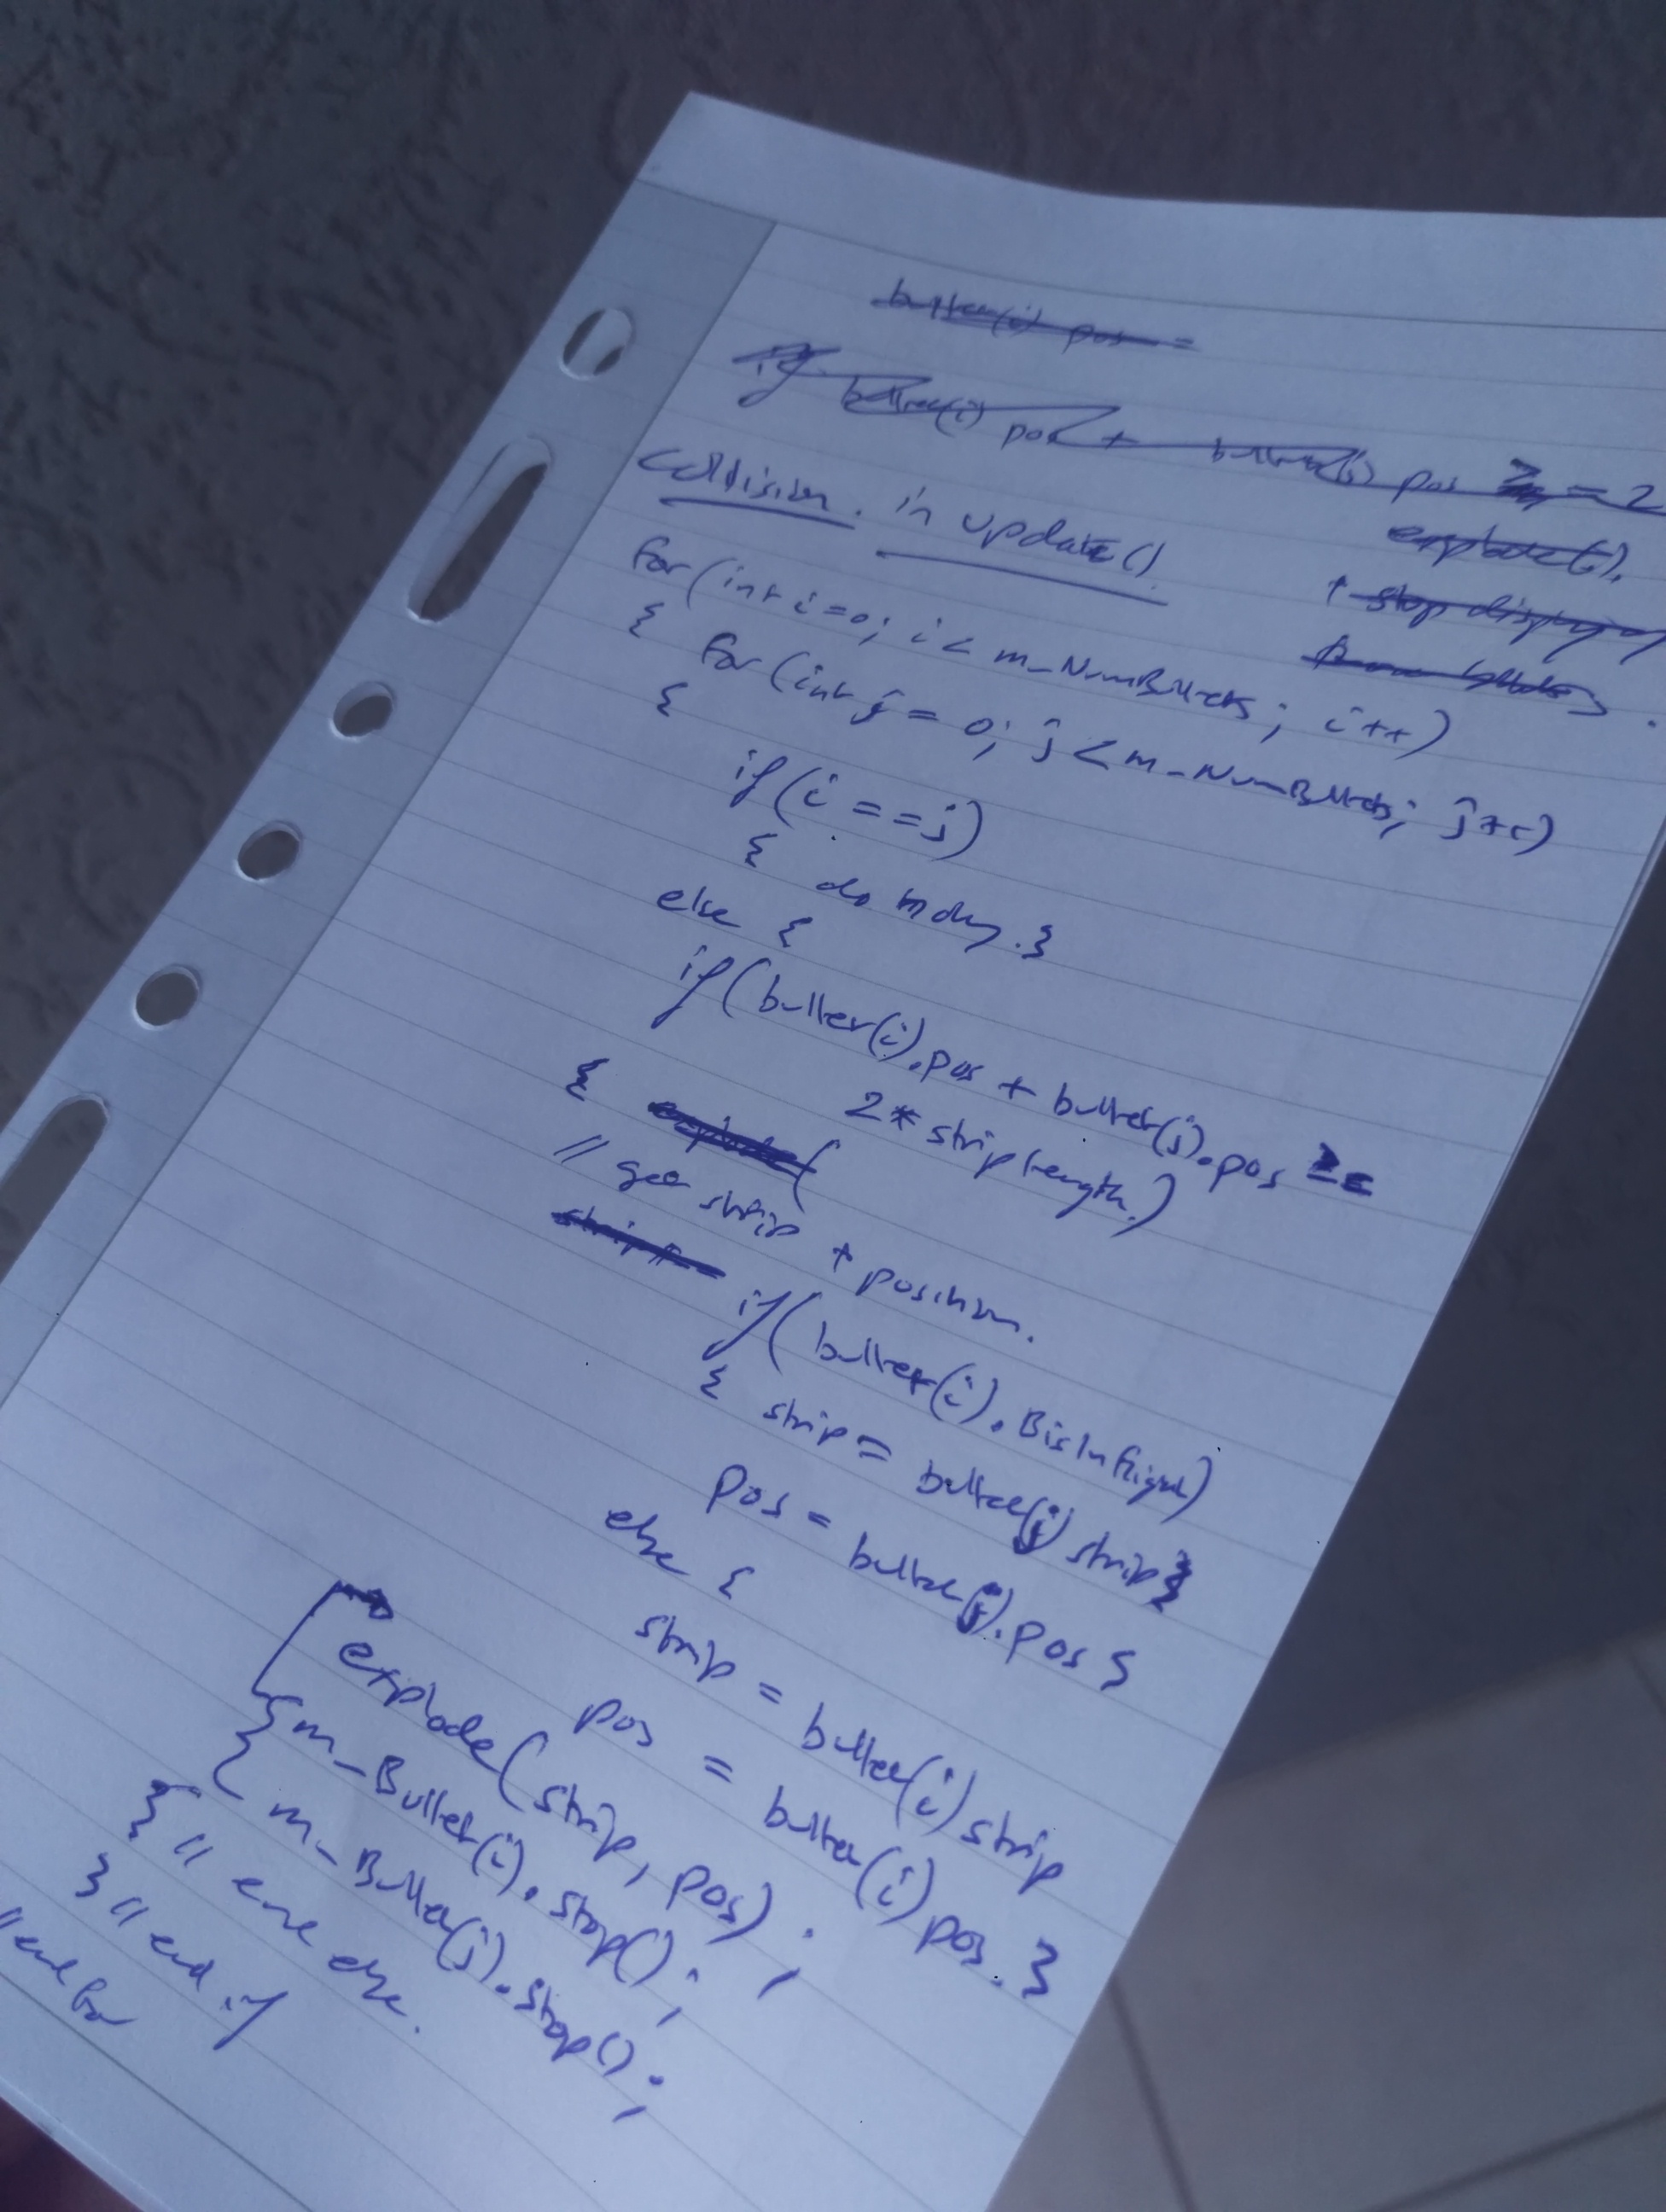 bullet(i) pos =
if bullet(i) pos + bullet(j) pos = 2
explode().
stop displaying
Collision. in update().
for(int i=0; i < m_NumBullets; i++)
{ for(int j = 0; j < m_NumBullets; j++)
{
if(i == j)
{ do nothing.}
else {
if(bullet(i).pos + bullet(j).pos >=
2* strip length.)
{ explode(
// get strip + position.
strip =
if(bullet(i).BisInflight)
{ strip = bullet(j) strip}
pos = bullet(j).pos }
else {
strip = bullet(i) strip
pos = bullet(i) pos.}
explode(strip, pos);
m_Bullet(i).stop();
m_Bullet(j).stop();
} // end else.
} // end if
// end for